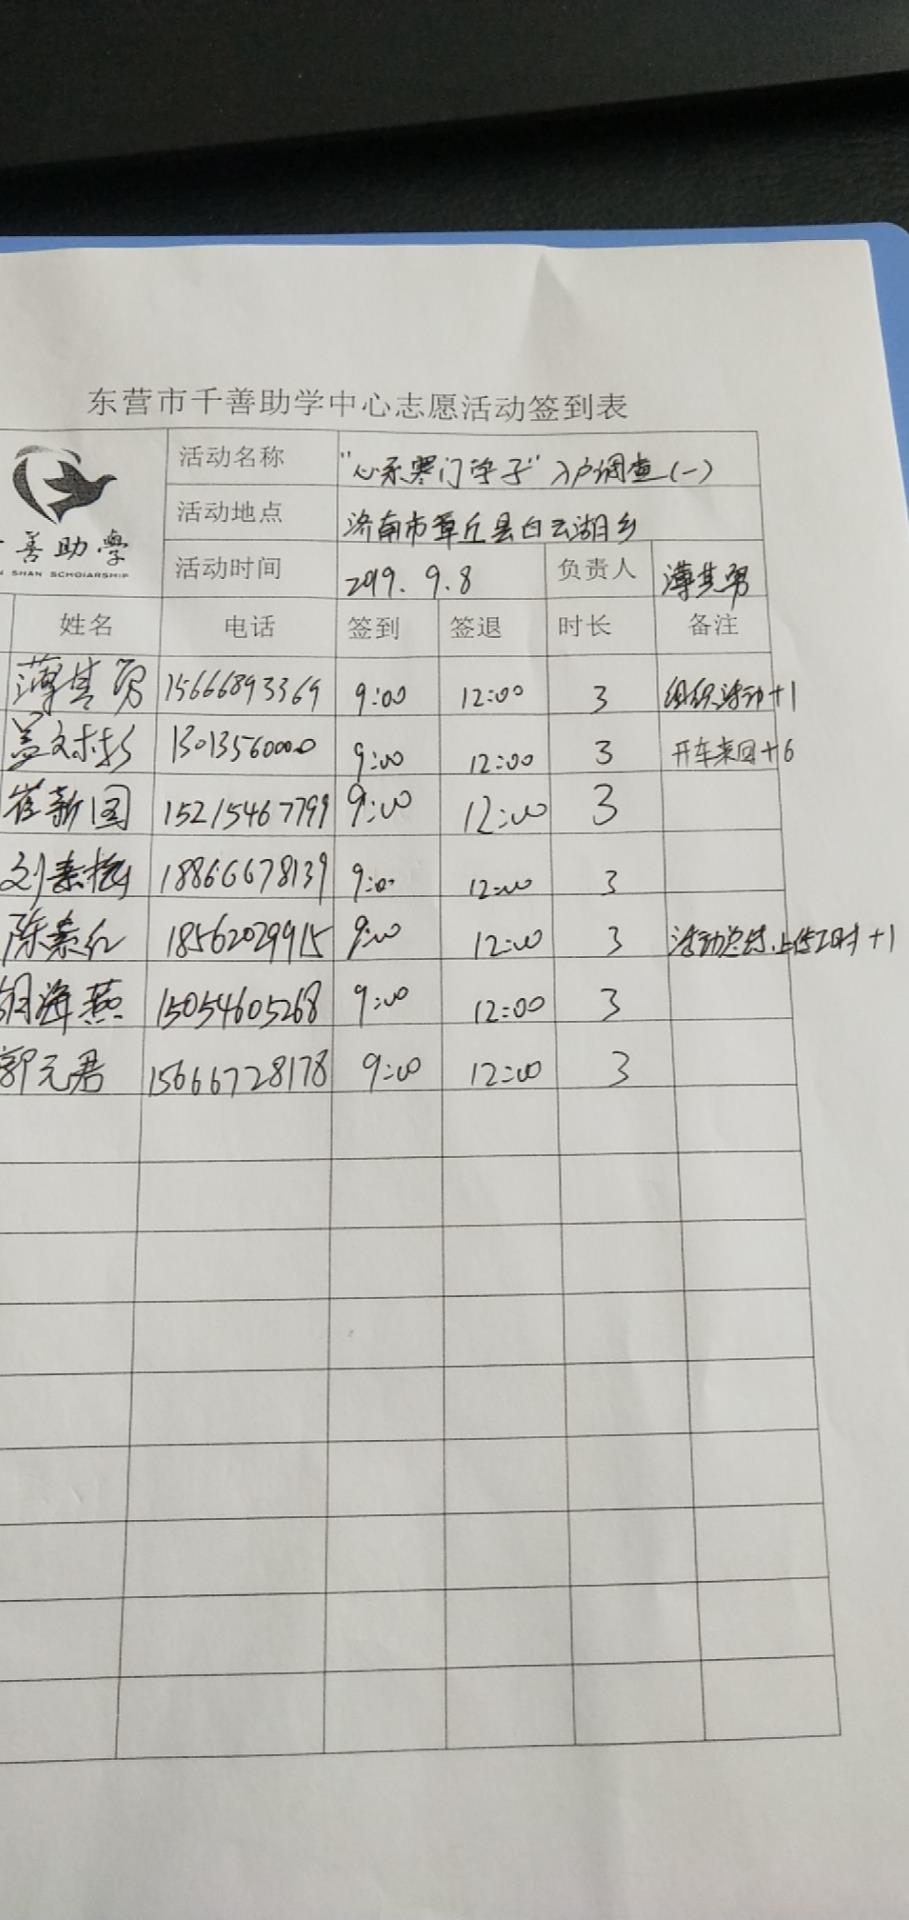 东营市千善助学中心志愿活动签到表
善助學
SHAN SCHOLARSHIP
活动名称 "心系寒门学子"入户调查(一)
活动地点 济南市章丘县白云湖乡
活动时间 2019.9.8 负责人 薄其勇
姓名 电话 签到 签退 时长 备注
薄其勇 15666893369 9:00 12:00 3 组织活动+1
盖 13013560000 9:00 12:00 3 开车来回+6
崔新国 15215467799 9:00 12:00 3
刘素梅 18866678139 9:00 12:00 3
陈素红 18562029915 9:00 12:00 3 活动总结、上传工时+1
胡海燕 15054605268 9:00 12:00 3
郭元君 15666728178 9:00 12:00 3